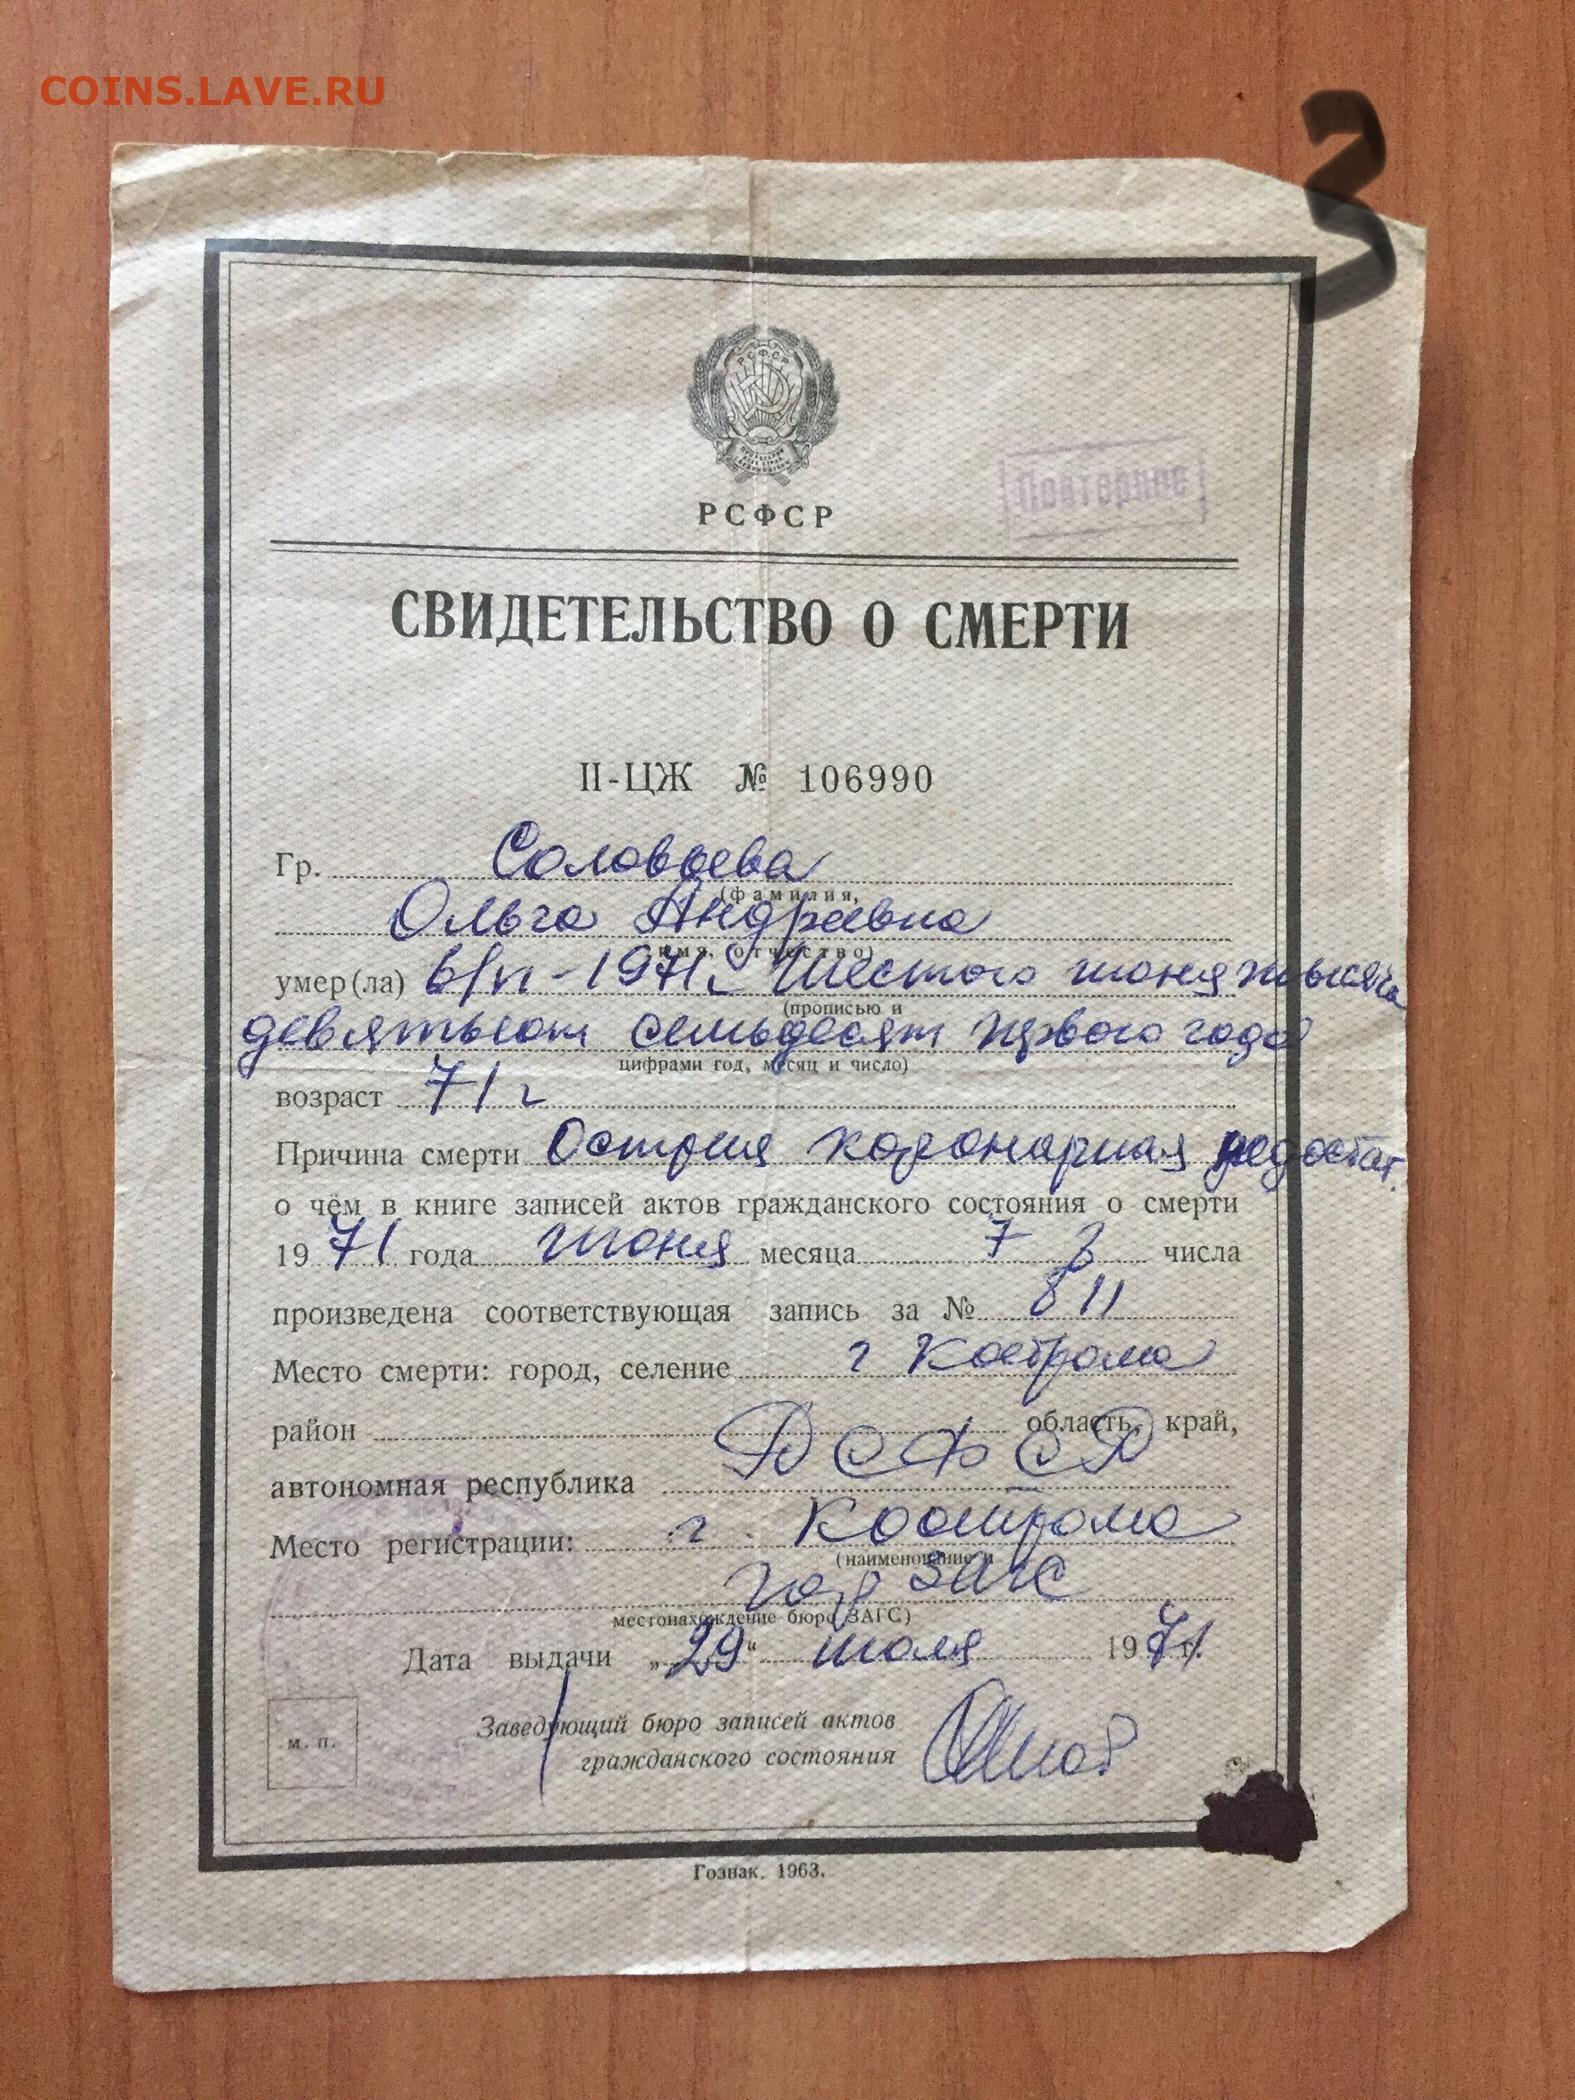 COINS.LAVE.RU
3
РСФСР
РСФСР
Повторное
СВИДЕТЕЛЬСТВО О СМЕРТИ
II-ЦЖ № 106990
Гр. Соловьева
(фамилия,
Ольга Андреевна
имя, отчество)
умер(ла) 6/VI-1971г Шестого июня тысяча
(прописью и
девятьсот семьдесят первого года
цифрами год, месяц и число)
возраст 71 г
Причина смерти Острая коронарная недостат.
о чём в книге записей актов гражданского состояния о смерти
1971 года июня месяца 7 числа
произведена соответствующая запись за № 811
Место смерти: город, селение г Кострома
район область, край,
автономная республика РСФСР
Место регистрации: г. Кострома
(наименование и
гор ЗАГС
местонахождение бюро ЗАГС)
Дата выдачи „29“ июля 1971 г.
Заведующий бюро записей актов
гражданского состояния
м. п.
Гознак. 1963.